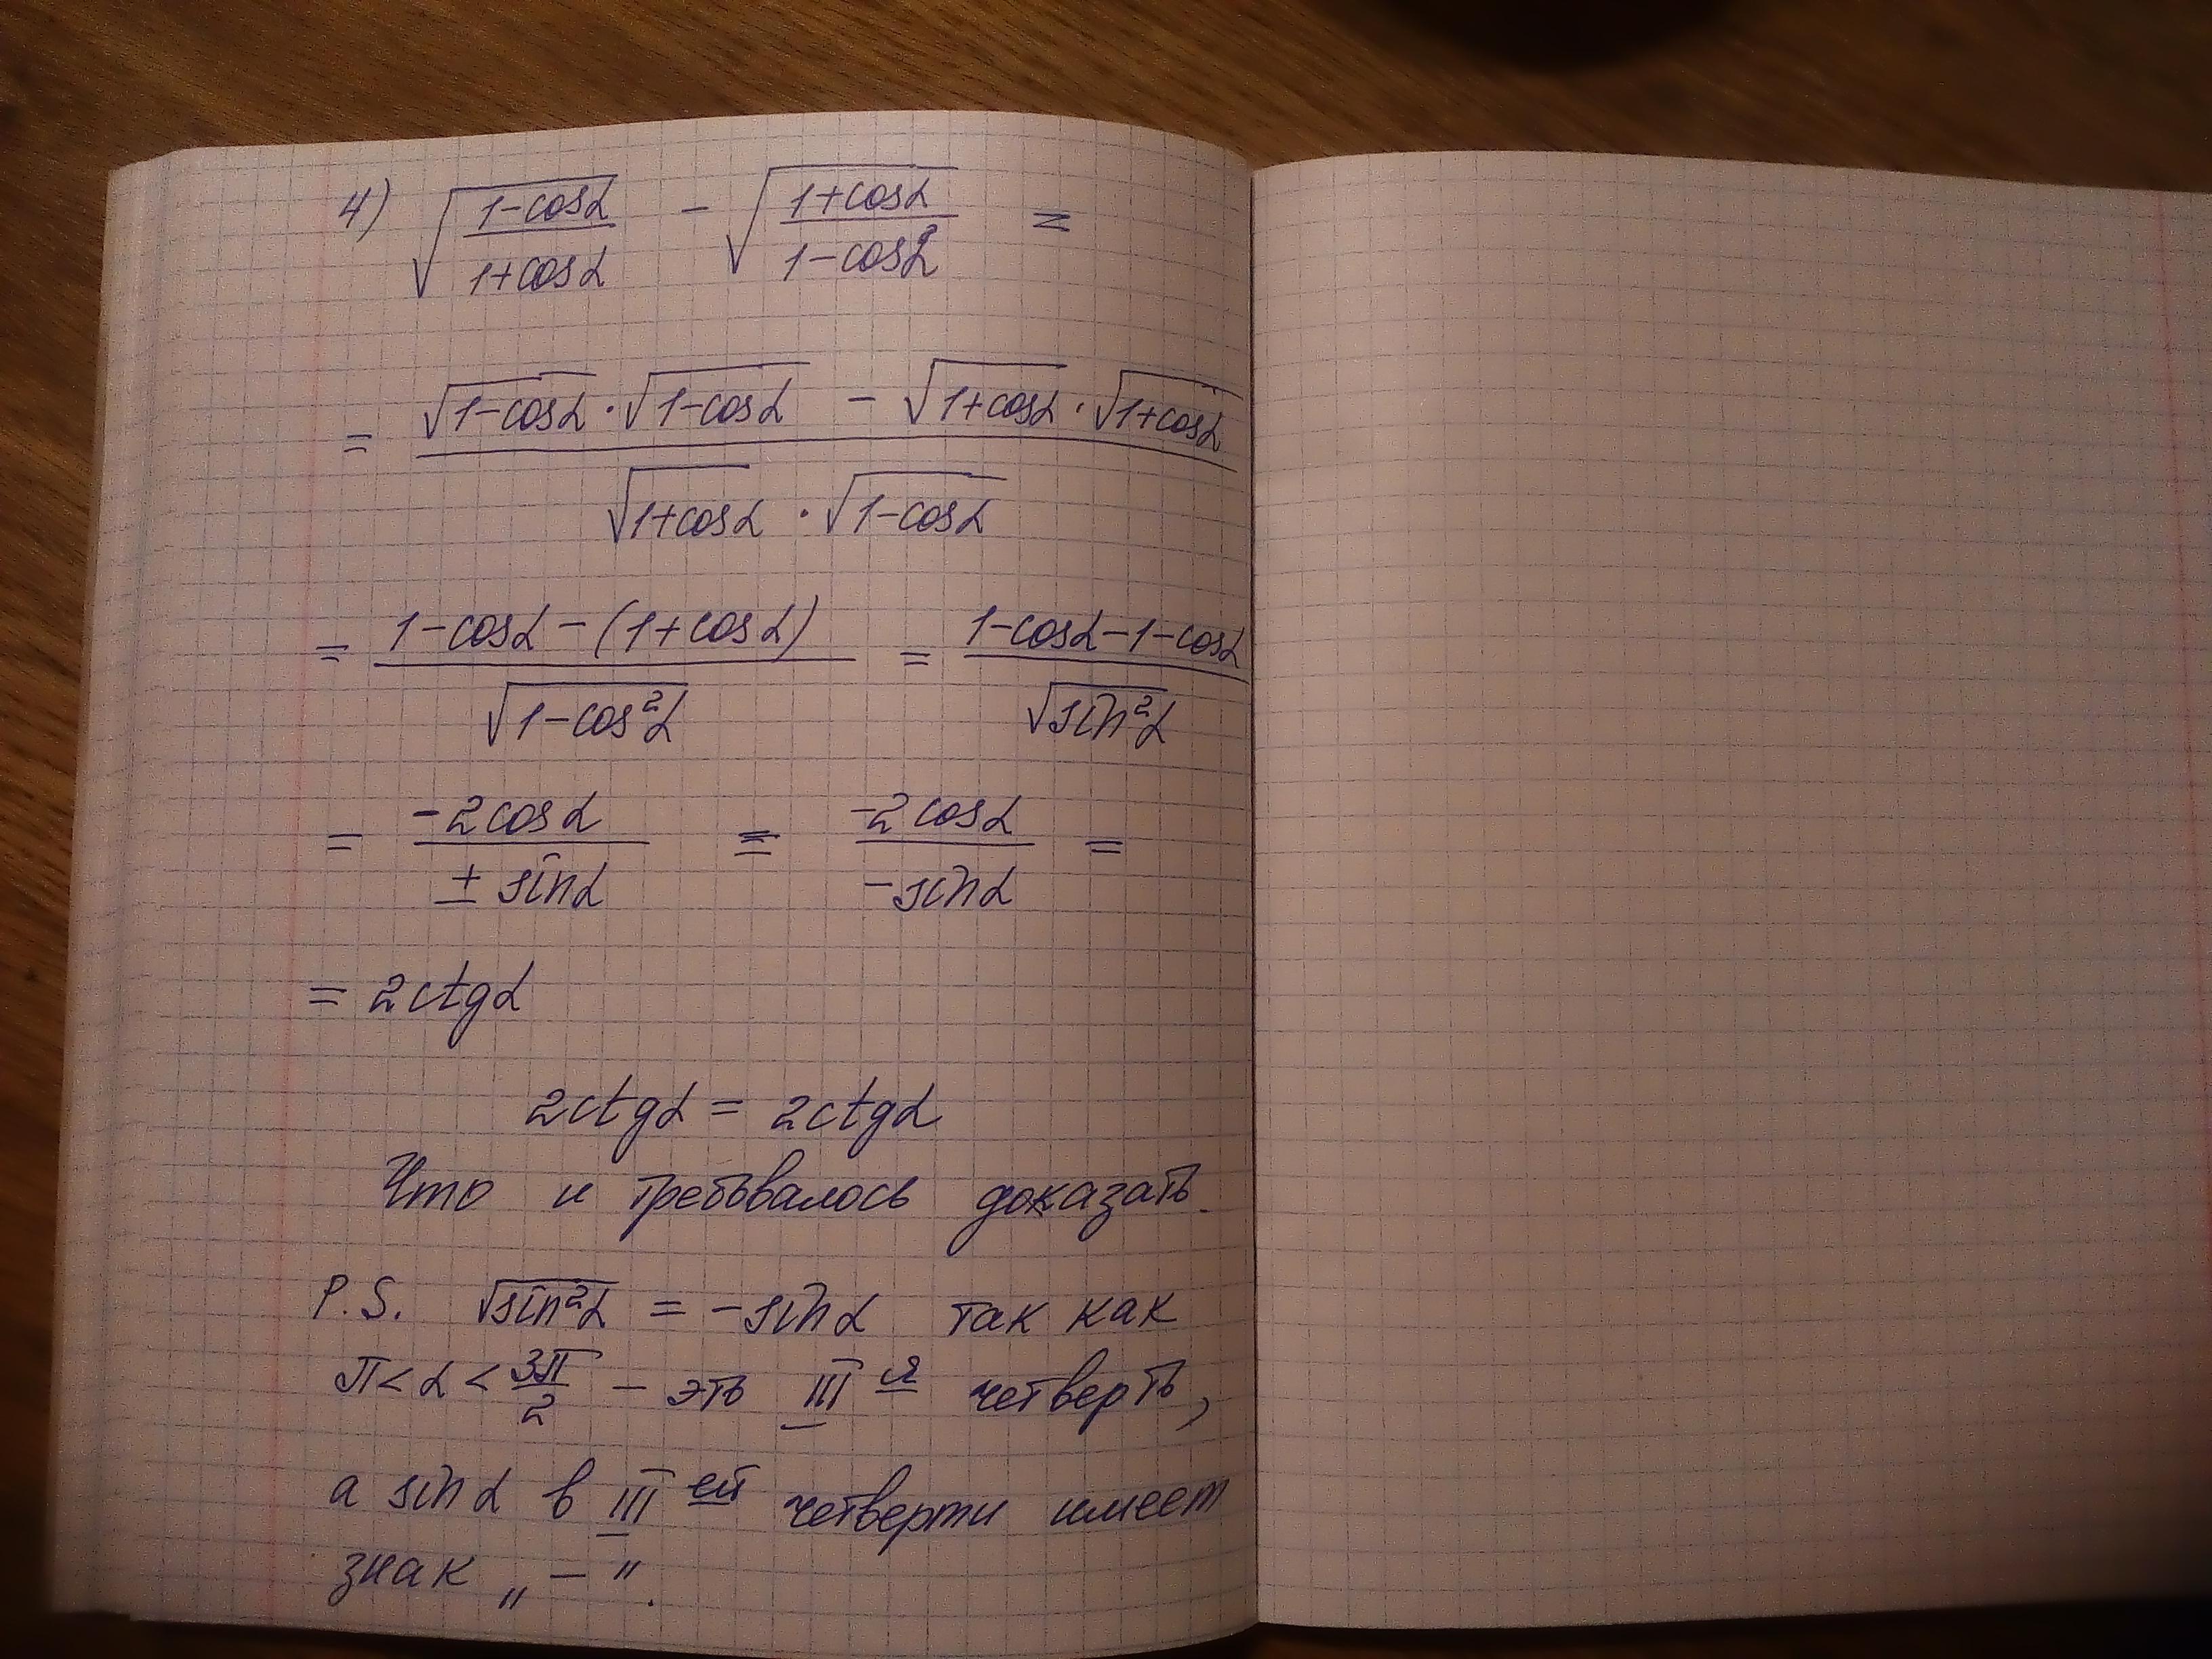 4) √((1-cosα)/(1+cosα)) - √((1+cosα)/(1-cosα)) =
= (√(1-cosα) · √(1-cosα) - √(1+cosα) · √(1+cosα)) / (√(1+cosα) · √(1-cosα))
= (1-cosα-(1+cosα)) / √(1-cos²α) = (1-cosα-1-cosα) / √(sin²α)
= (-2cosα) / (± sinα) = (-2cosα) / (-sinα) =
= 2ctgα
2ctgα = 2ctgα
Что и требовалось доказать.
P.S. √(sin²α) = -sinα так как
π < α < 3π/2 - это III я четверть,
а sinα в III ей четверти имеет
знак „ — ".